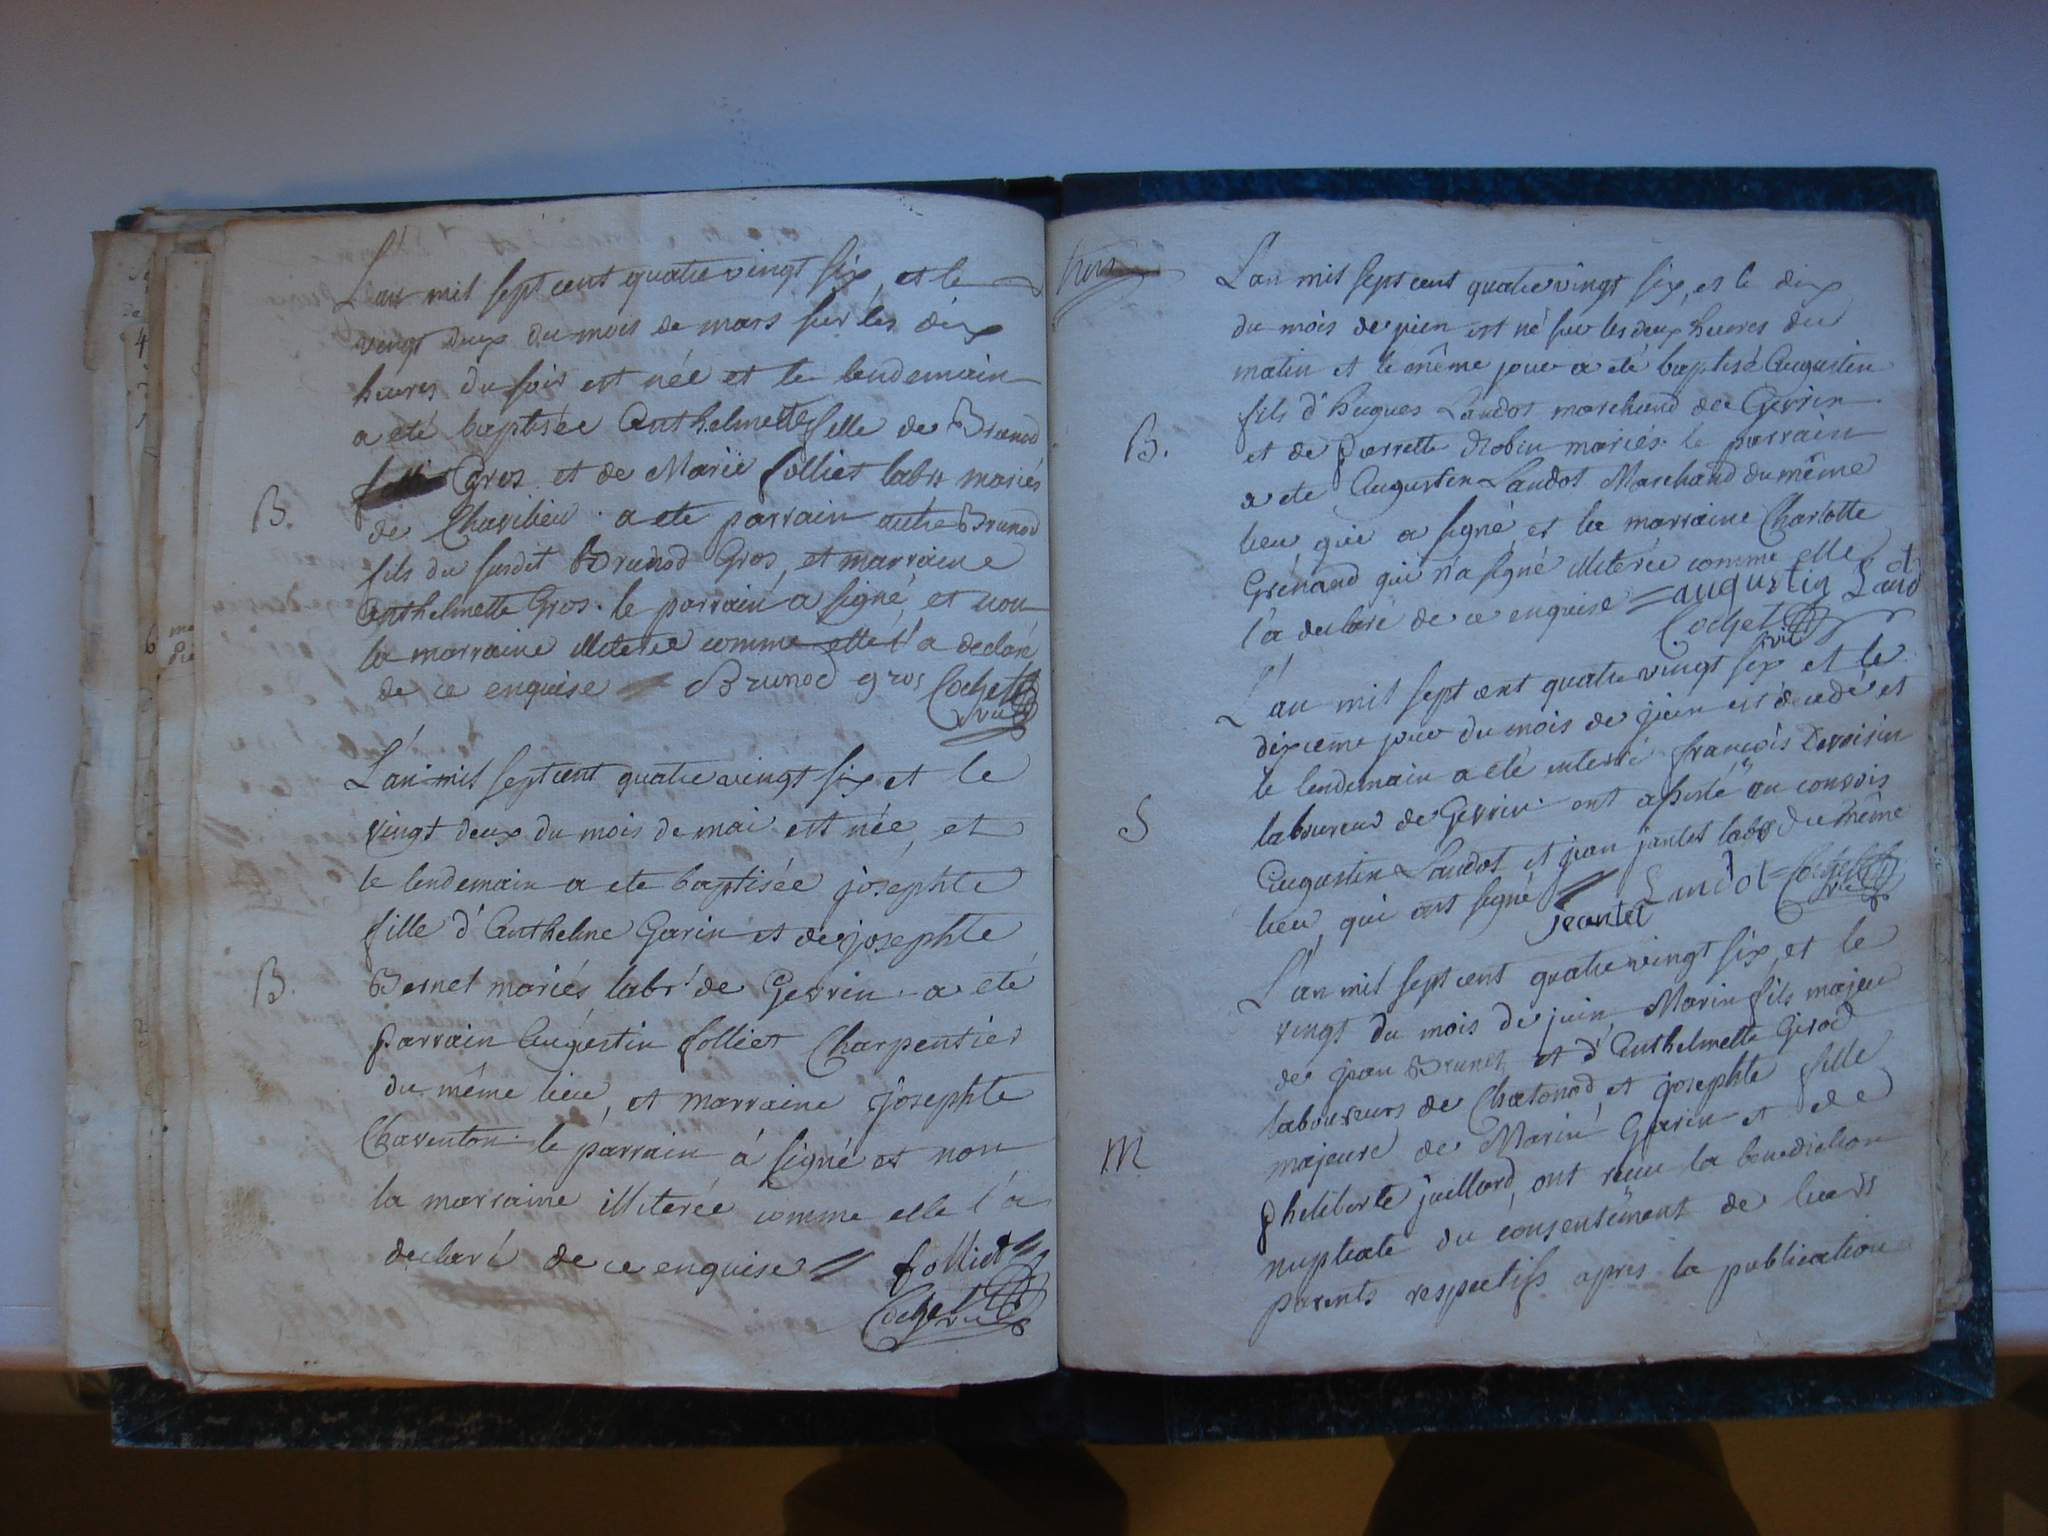 L'an mil sept cent quatre vingt six, et le
vingt deux du mois de mars sur les dix
heures du soir est née et le lendemain
a eté baptisée Anthelmette fille de Brunod
Gros et de Marie folliet lab.rs mariés
de Charilieu. a eté parrain autre Brunod
B.
fils du susdit Brunod Gros, et marraine
Anthelmette Gros. le parrain a signé, et non
la marraine illiterée comme elle l'a declaré
de ce enquise // Brunod gros Cochet
vic
L'an mil sept cent quatre vingt six et le
vingt deux du mois de mai est née, et
le lendemain a eté baptisée josephte
fille d'Anthelme Garin et de josephte
B.
Bernet mariés lab.rs de Gevrin. a eté
parrain Augustin folliet Charpentier
du même lieu, et marraine josephte
Charenton. le parrain á signé et non
la marraine illiterée comme elle l'a
declaré de ce enquise // folliet //
Cochet vic
L'an mil sept cent quatre vingt six, et le dix
du mois de juin est né sur les deux heures du
matin et le même jour a eté baptisé Augustin
fils d'hugues Laudot marchand de Gevrin
B.
et de pierrette Robin mariés. le parrain
a eté Augustin Laudot Marchand du même
lieu, qui a signé, et la marraine Charlotte
Grenand qui n'a signé illiterée comme elle
l'a declaré de ce enquise = augustin Laudot
Cochet
vic
L'an mil sept cent quatre vingt six et le
dixieme jour du mois de juin est decedé et
le lendemain a eté enterré françois Devoisin
S
laboureur de Gevrin. ont assisté au convois
Augustin Laudot et jean jantet lab.rs du même
lieu, qui ont signé // jeantet Laudot = Cochet
vic
L'an mil sept cent quatre vingt six, et le
vingt du mois de juin Marin fils majeur
de jean Brunet et d'Anthelmette Girod
laboureurs de Chatonod et josephte fille
M
majeure de Marin Garin et de
philiberte juillard, ont reçu la benediction
nuptiale du consentement de leurs
parents respectifs apres la publication